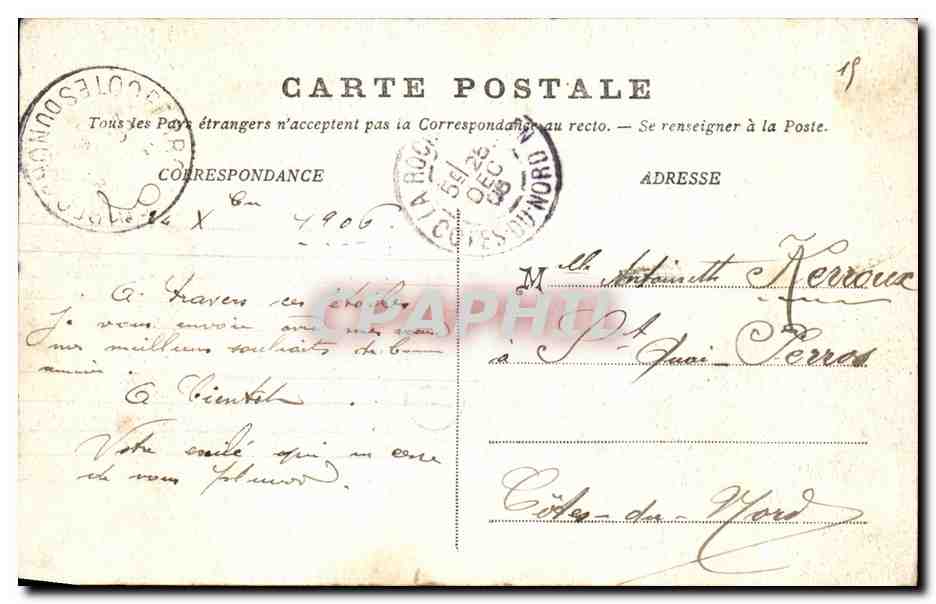 15
CARTE POSTALE
Tous les Pays étrangers n'acceptent pas la Correspondance au recto. — Se renseigner à la Poste.
CORRESPONDANCE
ADRESSE
COTES DU NORD
LA ROCHE
5E/ 26
DEC
06
COTES-DU-NORD
24 X 1906
A travers ces étoiles
je vous envoie avec mes
mes meilleurs souhaits de bonne
année.
A bientôt.
Votre exilé qui in cesse
de vous
Mlle Antoinette Kerroux
à St Quai-Perros
Côtes-du-Nord
CPAPHIL